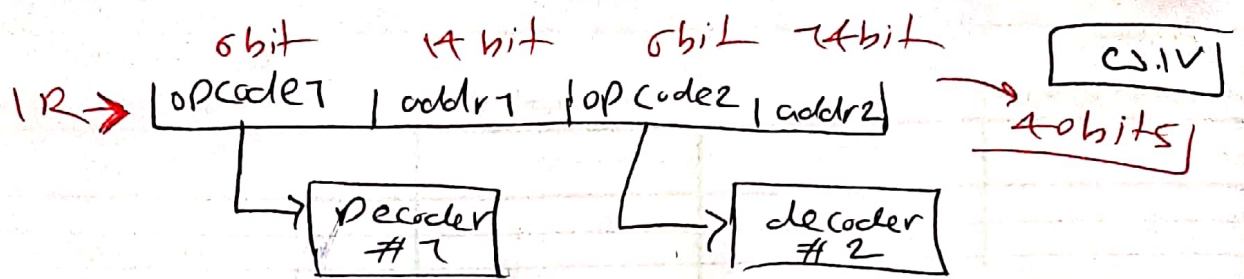 6bit 14bit 6bit 14bit
IR → opcode1 | addr1 | opcode2 | addr2
40bits
Decoder
#1
decoder
#2